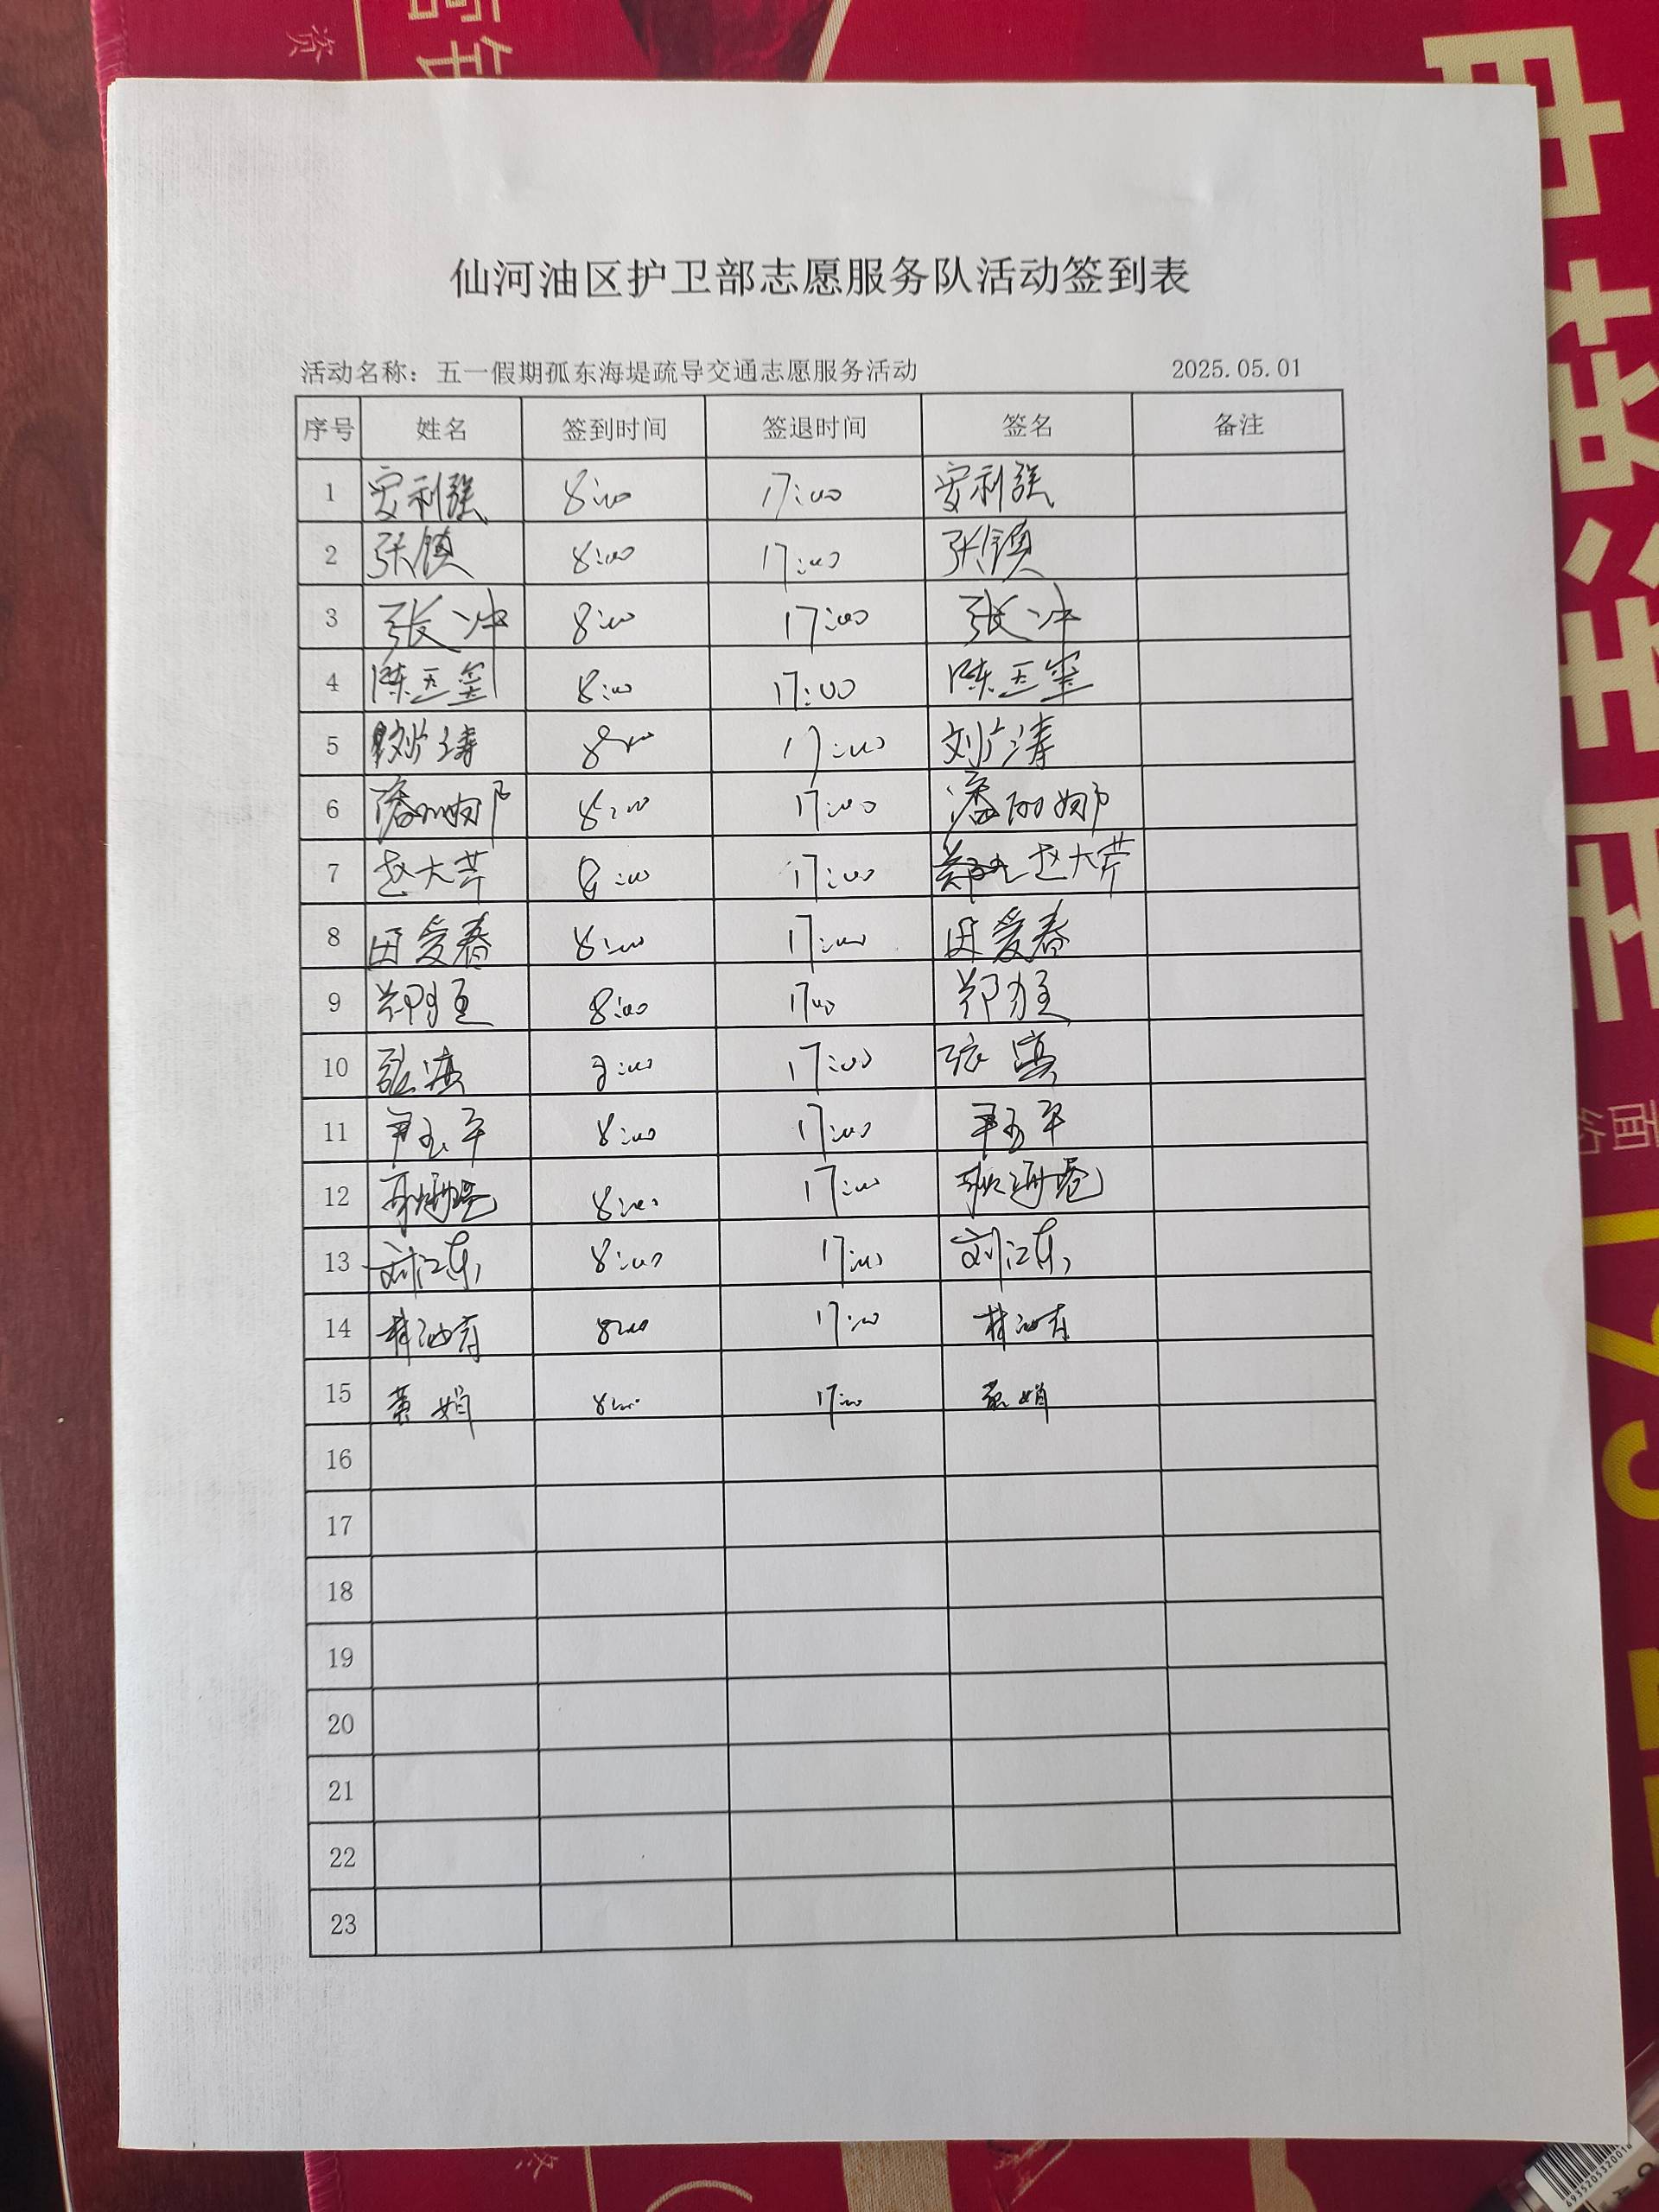 仙河油区护卫部志愿服务队活动签到表
活动名称：五一假期孤东海堤疏导交通志愿服务活动 2025.05.01
序号 姓名 签到时间 签退时间 签名 备注
1 安利强 8:00 17:00 安利强
2 张镇 8:00 17:00 张镇
3 张冲 8:00 17:00 张冲
4 陈玉玺 8:00 17:00 陈玉玺
5 刘广涛 8:00 17:00 刘广涛
6 潘丽娜 8:00 17:00 潘丽娜
7 赵大芹 8:00 17:00 赵大芹
8 田爱春 8:00 17:00 田爱春
9 郑 8:00 17:00 郑
10 张滨 8:00 17:00 张滨
11 尹玉平 8:00 17:00 尹玉平
12 8:00 17:00
13 刘江东 8:00 17:00 刘江东
14 林油青 8:00 17:00 林油青
15 黄娟 8:00 17:00 黄娟
16
17
18
19
20
21
22
23